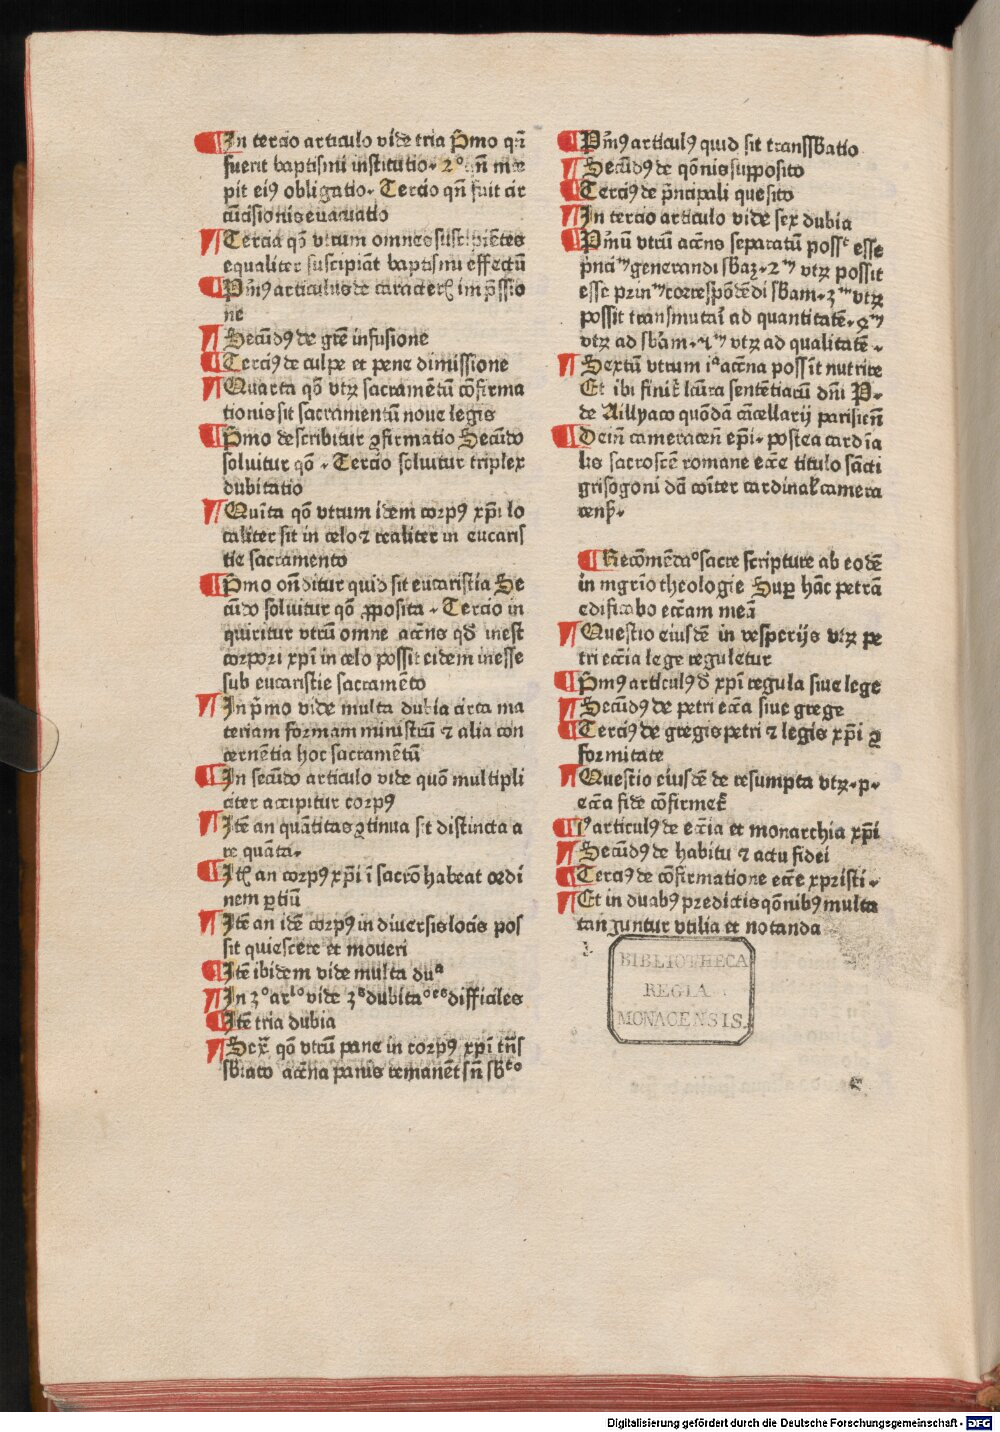 In tercio articulo vide tria P̄mo qn̄
fuerit baptismi institutio. 2° qn̄ ince
pit eiꝰ obligatio. Tercio qn̄ fuit cir
cūcisionis euacuatio
Tercia qō vtrum omnes suscipiētes
equaliter suscipiāt baptismi effectū
Pm̄ꝰ articulus de caracterꝭ imp̄ssio
ne
Secūdꝰ de grē infusione
Terciꝰ de culpe et pene dimissione
Quarta qō vtꝝ sacramētū cōfirma
tionis sit sacramentū noue legis
P̄mo describitur ꝯfirmatio Secūdo
soluitur qō . Tercio soluitur triplex
dubitatio
Quīta qō vtrum idem corpꝰ xp̄i lo
caliter sit in celo ⁊ realiter in eucaris
tie sacramento
P̄mo ostenditur quid sit eucaristia Se
cūdo soluitur qō ꝓposita . Tercio in
quiritur vtrū omne accn̄s qd̄ inest
corpori xp̄i in celo possit eidem inesse
sub eucaristie sacramēto
In p̄mo vide multa dubia circa ma
teriam formam ministrū ⁊ alia con
cernētia hoc sacramētū
In secūdo articulo vide quō multipli
citer accipitur corpꝰ
Itē an quātitas ꝯtinua sit distincta a
re quāta.
Itē an corpꝰ xp̄i ī sacrō habeat ordi
nem ꝑtiū
Itē an idē corpꝰ in diuersis locis pos
sit quiescere et moueri
Itē ibidem vide multa duᵃ
In 3° arˡᵒ vide 3ˢ dubitaᵒᵉˢ difficiles
Itē tria dubia
Sexᵗᵃ qō vtrū pane in corpꝰ xp̄i trn̄s
sb̄iato accn̄a panis remanēt sn̄ sb̄ᵗᵒ
Pm̄ꝰ articulꝰ quid sit transsb̄atio
Secūdꝰ de qōnis supposito
Terciꝰ de p̄ncipali quesito
In tercio articulo vide sex dubia
Pm̄ū vtrū accn̄s separatū possᵗ esse
p̄nciᵐ generandi sb̄aꝫ. 2ᵐ vtꝝ possit
esse prinᵐ correspōdēdi sb̄am. 3ᵐ vtꝝ
possit transmutari ad quantitatē. 4ᵐ
vtꝝ ad sb̄am. 5ᵐ vtꝝ ad qualitatē .
Sextū vtrum iᵃ accn̄a possīt nutrire
Et ibi finit̄ lc̄ura sentētiarū dn̄i P.
de Aillyaco quōdā cācellarij parisieñ
Dein̄ cameraceñ ep̄i. postea cardīa
lis sacroscē romane ecc̄e titulo sācti
grisogoni dc̄ā cōiter cardinal̄ camera
ceñ.
Recōmēdaᵒ sacre scripture ab eodē
in mgr̄io theologie Suꝑ hāc petrā
edificabo ecc̄am meā
Questio eiusdē in vesperijs vtꝝ pe
tri ecc̄ia lege reguletur
Pm̄ꝰ articulꝰ d̄ xp̄i regula siue lege
Secūdꝰ de petri ecc̄a siue grege
Terciꝰ de gregis petri ⁊ legis xp̄i ꝯ
formitate
Questio eiusdē de resumpta vtꝝ. p.
ecc̄a fide cōfirmet̄
iꝰ articulꝰ de ecc̄ia et monarchia xp̄i
Secūdꝰ de habitu ⁊ actu fidei
Terciꝰ de cōfirmatione ecc̄e xpristi.
Et in duabꝰ predictis qōnibꝰ multa
tanguntur vtilia et notanda
BIBLIOTHECA
REGIA
MONACENSIS.
Digitalisierung gefördert durch die Deutsche Forschungsgemeinschaft - DFG